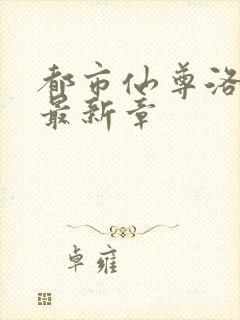 都市仙尊洛
最新章
卓雍